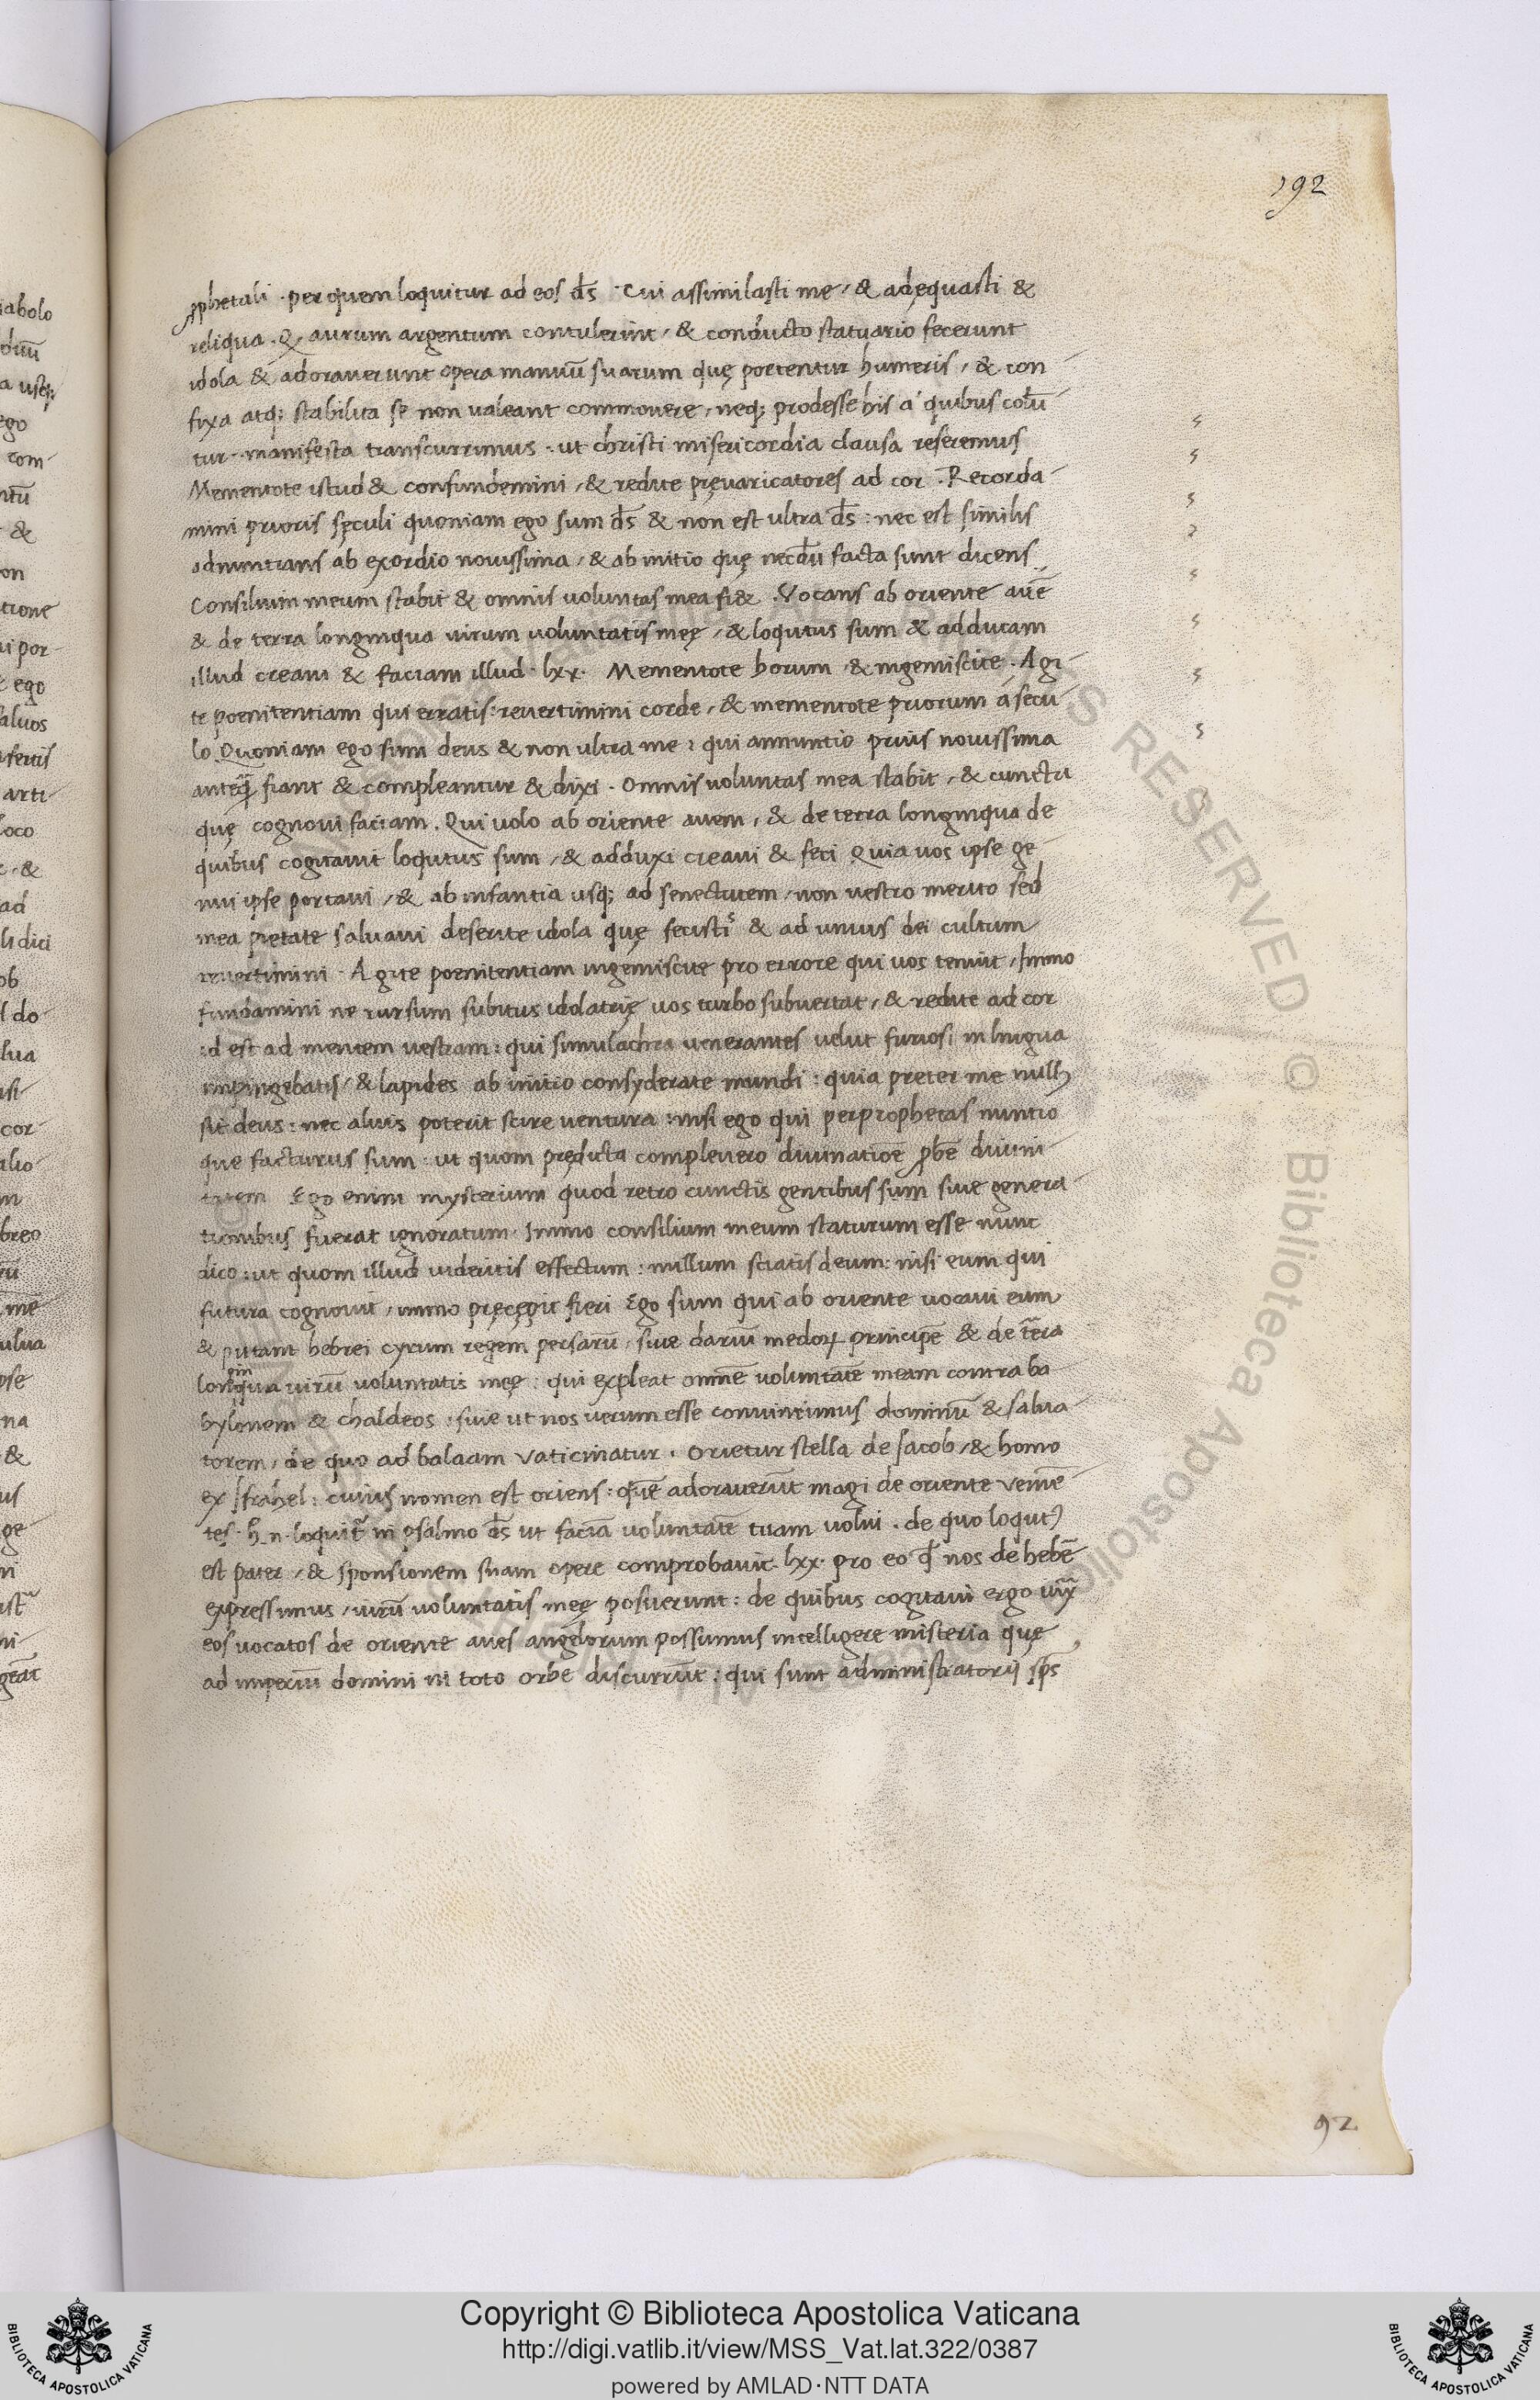 192
ꝓphetali · per quem loquitur ad eos d̄s · Cui assimilasti me / & adęquasti &
reliqua . Q aurum argentum contulerint / & conducto statuario fecerunt
idola & adorauerunt opera manuū suarum quę portentur humeris / & con-
fixa atq; stabilita se non ualeant commouere / neq; prodesse his a quibus colū-
tur · manifesta transcurrimus · ut christi misericordia clausa reseremus
Mementote istud & confundemini / & redite pręuaricatores ad cor . Recorda-
mini prioris sęculi quoniam ego sum d̄s & non est ultra d̄s : nec est similis
adnuntians ab exordio nouissima / & ab initio quę necdū facta sunt dicens
Consilium meum stabit & omnis uoluntas mea fi& . Vocans ab oriente auē
& de terra longinqua uirum uoluntatis meę / & loqutus sum & adducam
illud creaui & faciam illud · lxx · Mementote horum & ingemiscite . Agi-
te poenitentiam qui erratis : reuertimini corde / & mementote priorum a secu-
lo . Quoniam ego sum deus & non ultra me : qui annuntio prius nouissima
anteq̄ fiant & compleantur & dixi . Omnis uoluntas mea stabit / & cuncta
quę cognoui faciam . Qui uolo ab oriente auem / & de terra longinqua de
quibus cogitaui loqutus sum / & adduxi creaui & feci Quia uos ipse ge-
nui ipse portaui / & ab infantia usq; ad senectutem / non uestro merito sed
mea pietate saluaui deserite idola quę fecistis & ad unius dei cultum
reuertimini · Agite poenitentiam ingemiscite pro errore qui uos tenuit / Immo
fundamini ne rursum subitus idolatrię uos turbo subuertat / & redite ad cor
id est ad mentem uestram : qui simulachra uenerantes uelut furiosi in lingua
impingebatis / & lapides ab initio consyderate mundi : quia preter me null9
sit deus : nec alius poterit scire uentura : nisi ego qui per prophetas nuntio
que facturus sum : ut quom prędicta compleuero diuinatiōe ꝓbē diuini-
tatem Ego enim mysterium quod retro cunctis gentibus sum siue genera-
tionibus fuerat ignoratum · Immo consilium meum staturum esse nunc
dico : ut quom illud uideritis effectum : nullum sciatis deum : nisi eum qui
futura cognouit / immo pręcępit fieri Ego sum qui ab oriente uocaui eum
& putant hebrei cyrum regem persarū / siue dariū medoꝝ principē & de t̄ra
longinqua uirū uoluntatis meę : qui expleat omnē uoluntatē meam contra ba-
bylonem & chaldeos : siue ut nos uerum esse conuincimus dominū & salua-
torem / de quo ad balaam vaticinatur . Orietur stella de Jacob / & homo
ex Israhel : cuius nomen est oriens : quē adorauerūt magi de oriente veniē-
tes · h̄ n · loquit̄ in psalmo d̄s ut faciā uoluntatē tuam uolui . de quo loqut9
est pater / & sponsionem suam opere comprobauit · lxx · pro eo q̄ nos de hebē
expressimus / uirū uoluntatis meę posuerunt : de quibus cogitaui ergo iux̄
eos uocatos de oriente aues angelorum possumus intelligere misteria quę
ad imperiū domini in toto orbe discurrūt : qui sunt administratorij sp̄s
92
Copyright © Biblioteca Apostolica Vaticana
http://digi.vatlib.it/view/MSS_Vat.lat.322/0387
powered by AMLAD·NTT DATA
BIBLIOTECA APOSTOLICA VATICANA
BIBLIOTECA APOSTOLICA VATICANA